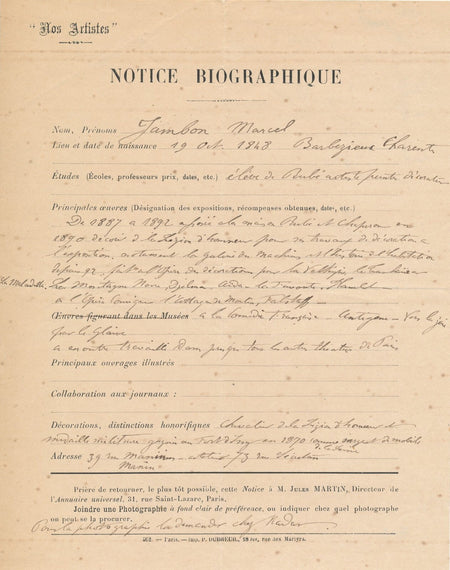 "Nos Artistes"
NOTICE BIOGRAPHIQUE
Nom, Prénoms Jambon Marcel
Lieu et date de naissance 19 oct. 1848 Barbezieux Charente
Études (Écoles, professeurs prix, dates, etc.) élève de Rubé artiste peintre décorateur
Principales œuvres (Désignation des expositions, récompenses obtenues, dates, etc.)
De 1887 à 1892 associé à la maison Rubé et Chaperon en
1890 décoré de la Légion d'honneur pour ses travaux de décoration à
l'exposition, notamment la galerie des Machines et
depuis 92 fait à l'Opéra les décorations pour la Valkyrie,
La Maladetta, La Montagne Noire, Djelma Aïda Hamlet
à l'Opéra Comique l'attaque du Moulin, Falstaff
Œuvres figurant dans les Musées à la Comédie Française Antigone Vers la joie
par le Glaive
a en outre travaillé dans presque tous les autres théâtres de Paris
Principaux ouvrages illustrés
Collaboration aux journaux :
Décorations, distinctions honorifiques Chevalier de la Légion d'honneur et
médaille militaire en 1870 comme sergent de mobile
de la Seine
Adresse 39 rue atelier 73 rue Secrétan
Manin
Prière de retourner, le plus tôt possible, cette Notice à M. JULES MARTIN, Directeur de
l'Annuaire universel, 31, rue Saint-Lazare, Paris.
Joindre une Photographie à fond clair de préférence, ou indiquer chez quel photographe
on peut se la procurer.
Pour la photographie la demander chez Nadar.
Paris. — IMP. P. DUBREUIL, 18 rue des Martyrs.